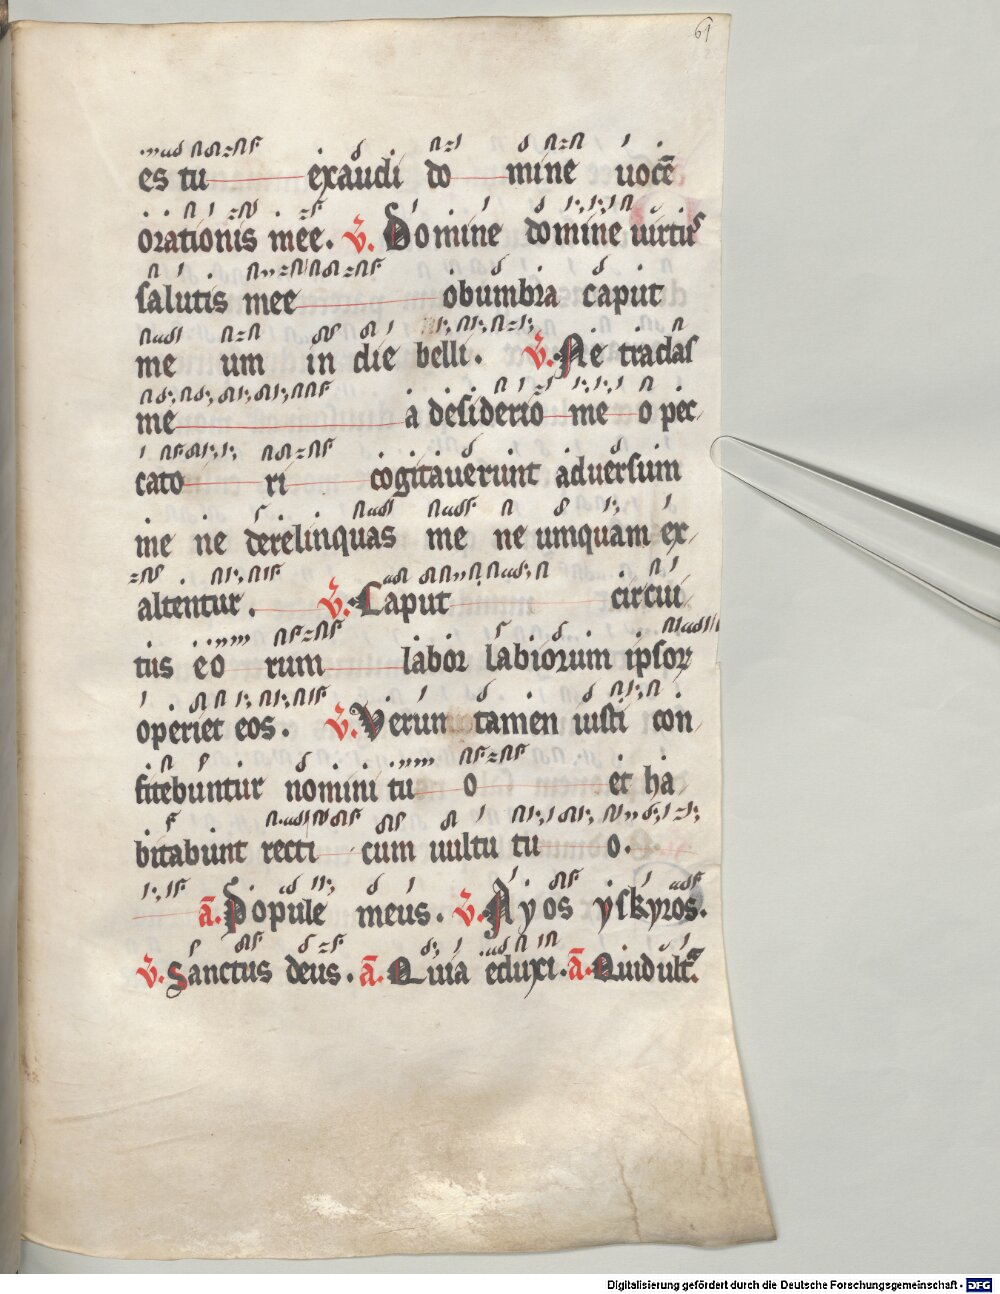 61
es tu exaudi do mine uocē
orationis mee. v̄. Domine domine uirtus
salutis mee obumbra caput
me um in die belli. v̄. Ne tradas
me a desiderio me o pec
cato ri cogitauerunt aduersum
me ne derelinquas me ne umquam ex
altentur. v̄. Caput circui
tus eo rum labor labiorum ipsoꝝ
operiet eos. v̄. Verum tamen iusti con
fitebuntur nomini tu o et ha
bitabunt recti cum uultu tu o.
ā. Popule meus. v̄. Ayos yskyros.
v̄. Sanctus deus. ā. Quia eduxi. ā. Quid ult̄.
Digitalisierung gefördert durch die Deutsche Forschungsgemeinschaft - DFG